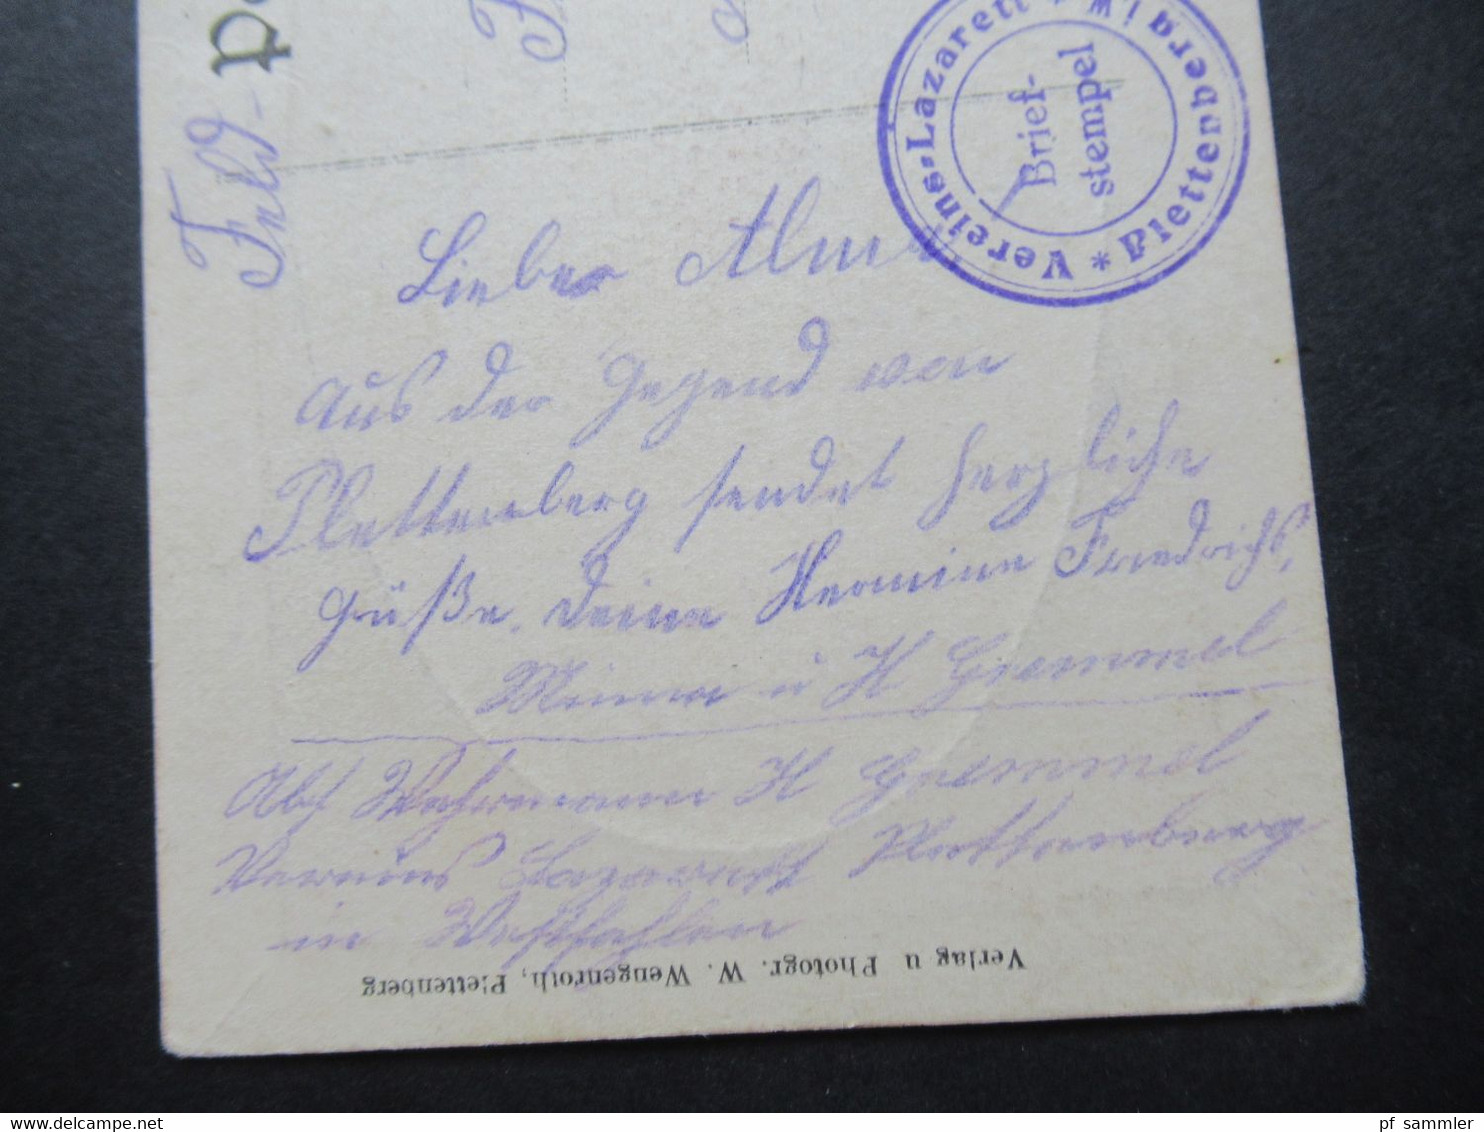 Feld-
Vereins-Lazarett * Plettenberg i.W.
Brief-
stempel
Liebe Alma
Aus der Gegend von
Plettenberg sendet herzliche
Grüße. Deine Hermine Friedrichs,
Minna u H Gremmel
Abs Wehrmann H Gremmel
Vereins Lazarett Plettenberg
in Westfahlen
Verlag u Photogr. W. Wengenroth, Plettenberg
pf_sammler